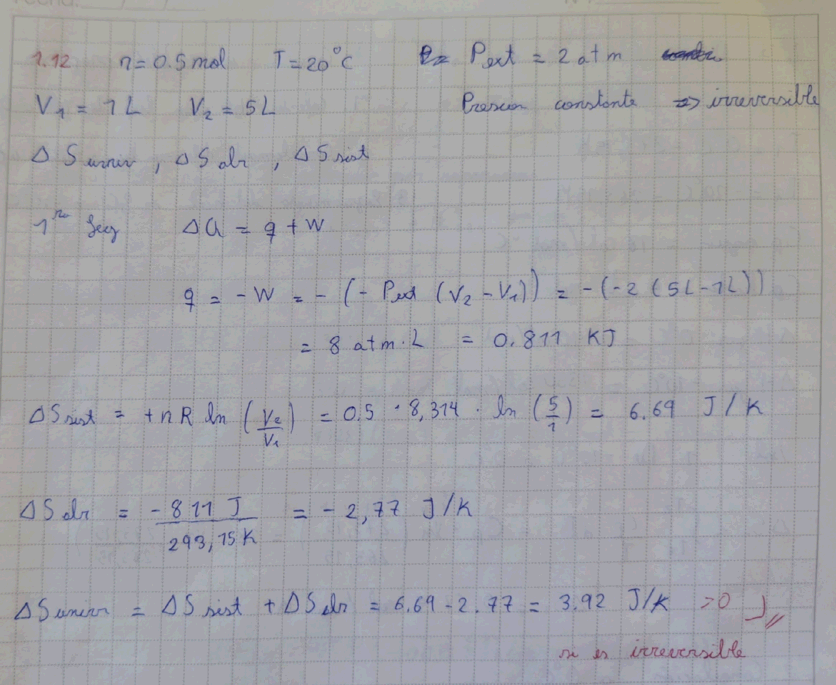 1.12 n=0.5 mol T=20°C Pext = 2 atm
V1 = 1L V2 = 5L Presion constante => irreversible
ΔS univ, ΔS alr, ΔS sist
1ra ley ΔU = q + W
q = -W = -(-Pext (V2-V1)) = -(-2(5L-1L))
= 8 atm·L = 0.811 KJ
ΔS sist = +nR ln (V2/V1) = 0.5 · 8,314 · ln (5/1) = 6.69 J/K
ΔS alr = -811 J / 293,15K = -2,77 J/K
ΔS univ = ΔS sist + ΔS alr = 6.69 - 2.77 = 3.92 J/K >0
si es irreversible